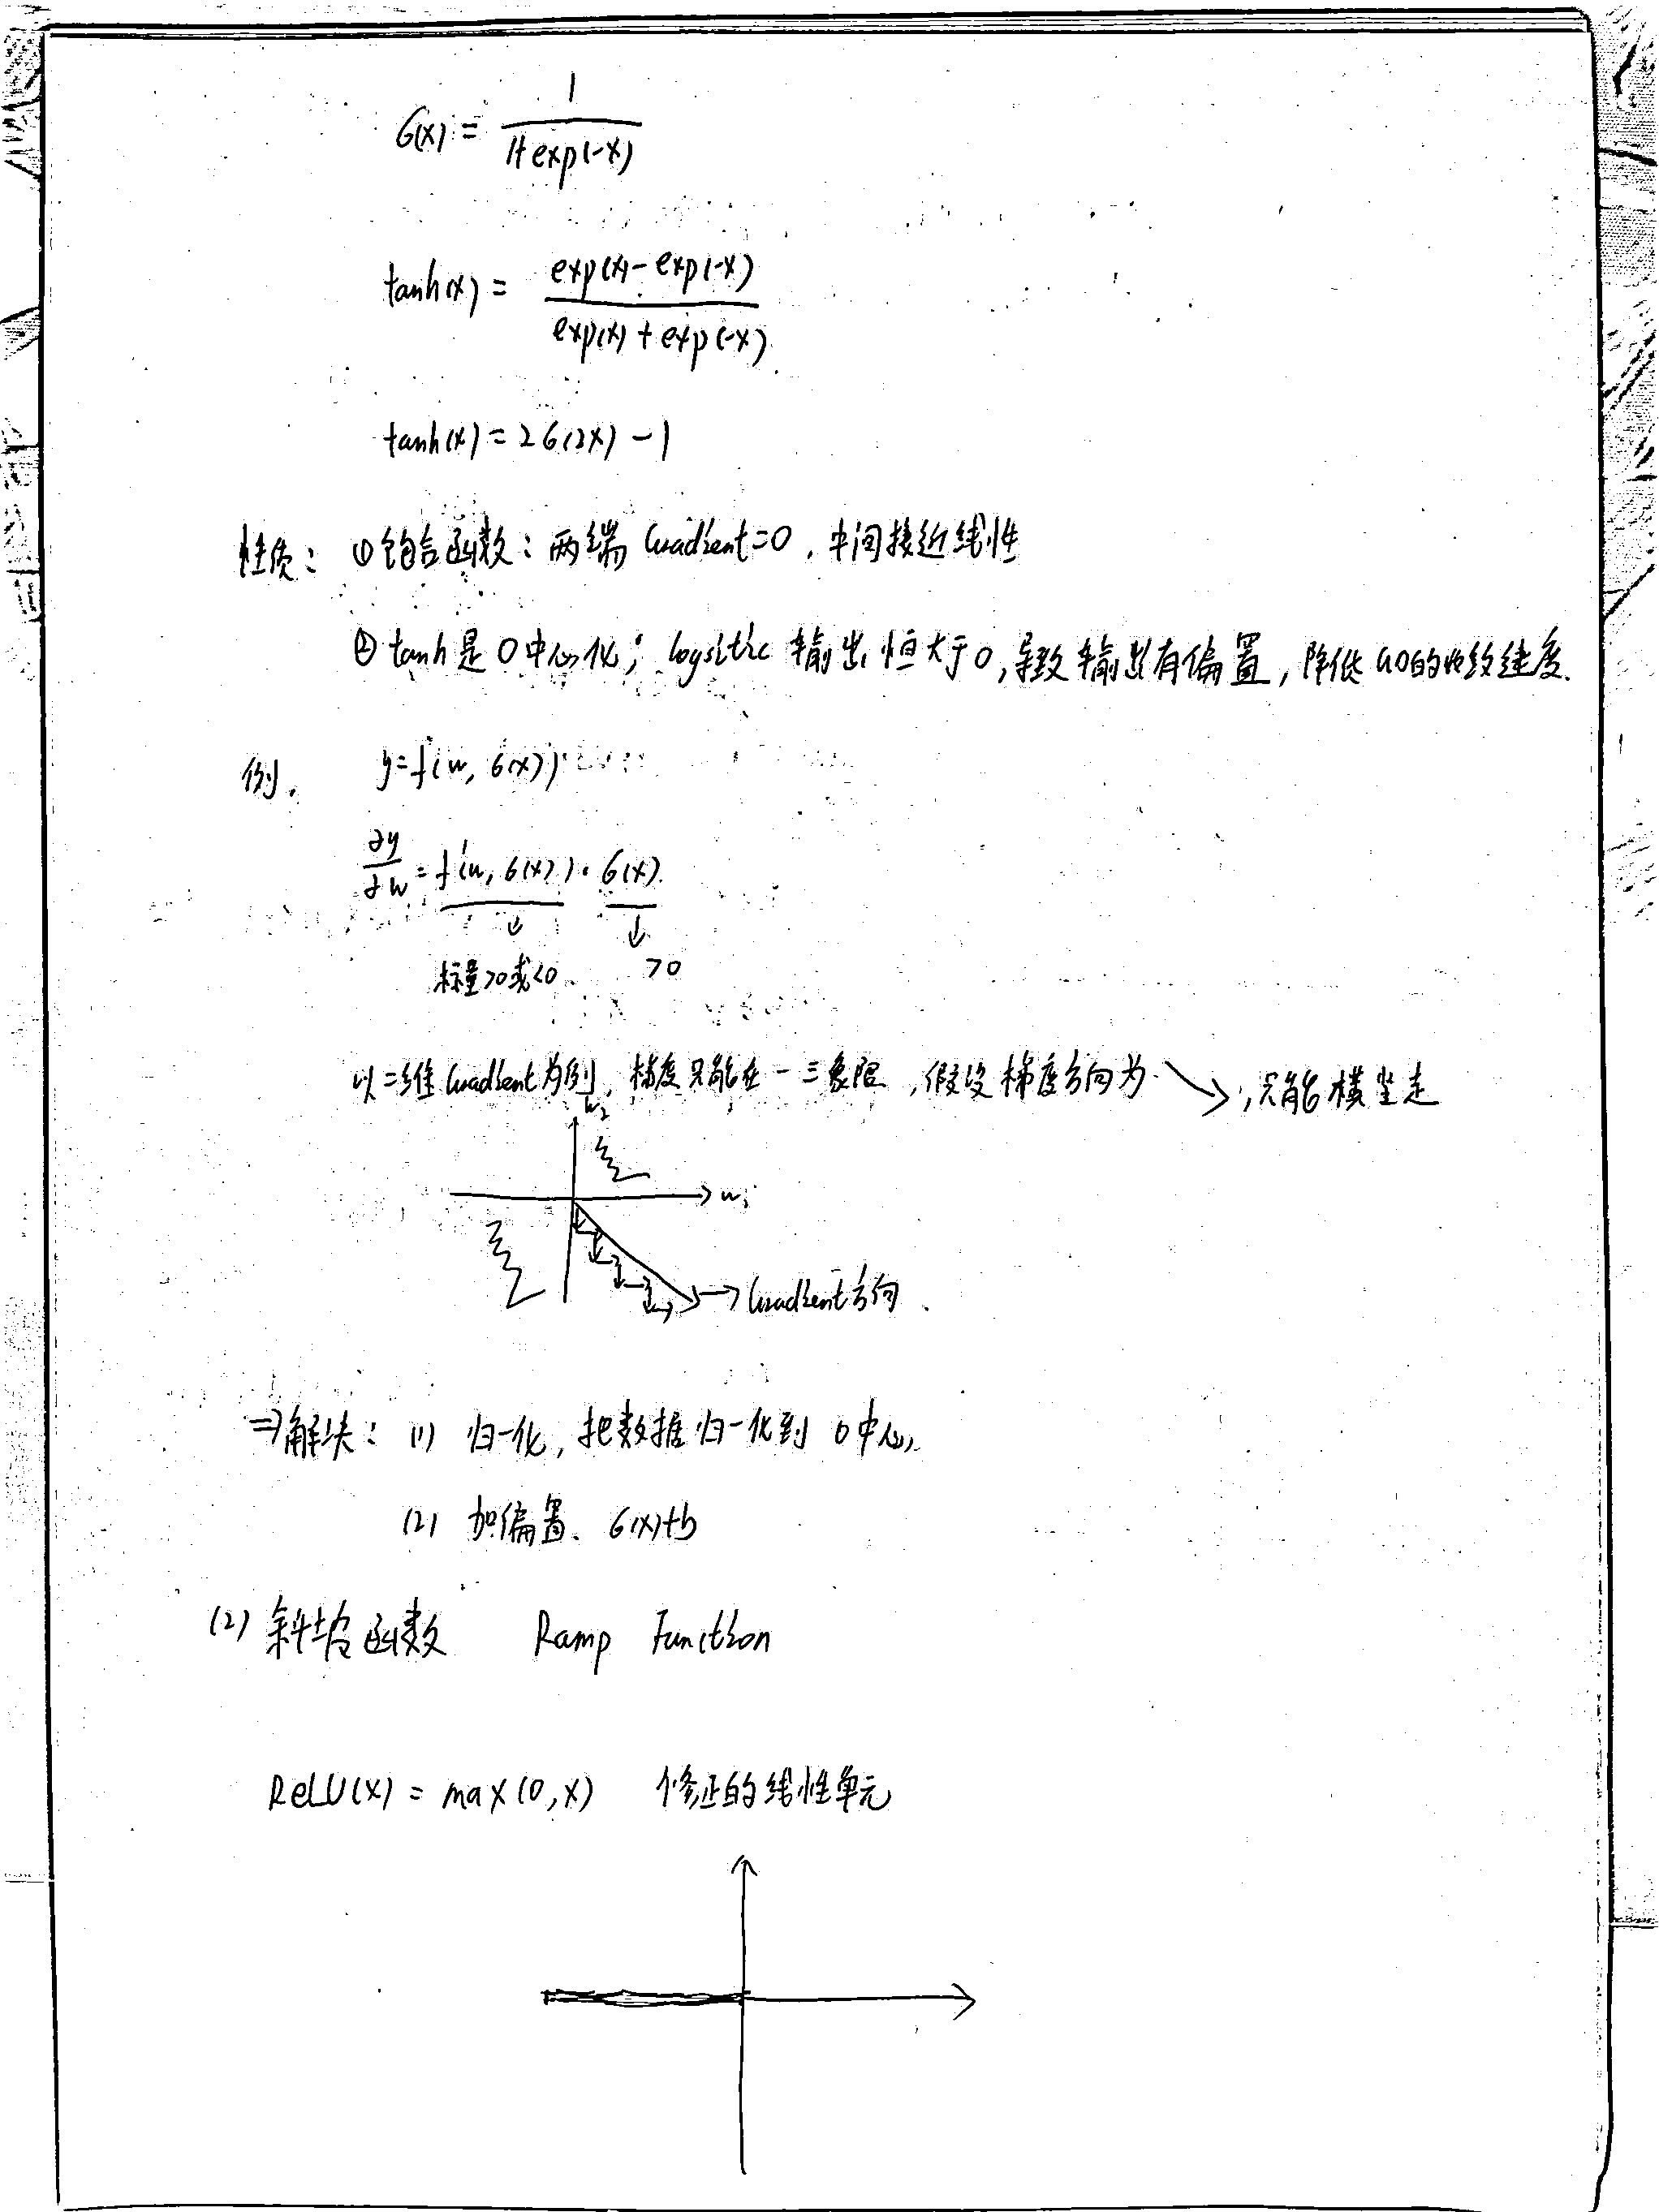 σ(x) = 1 / (1+exp(-x))
tanh(x) = (exp(x) - exp(-x)) / (exp(x) + exp(-x))
tanh(x) = 2σ(2x) - 1
性质: ①饱合函数: 两端 Gradient=0, 中间接近线性
② tanh是0中心化; logsitic 输出恒大于0, 导致输出有偏置, 降低GD的收敛速度.
例. y=f(w, σ(x))
∂y/∂w = f'(w, σ(x)) · σ(x)
↓ ↓
标量>0或<0 >0
以二维Gradient为例, 梯度只能在一三象限, 假设梯度方向为 ↘, 只能横坐走
w₂
→ w₁
→ Gradient方向.
⇒解决: (1) 归一化, 把数据归一化到 0中心.
(2) 加偏置. σ(x)+b
(2) 斜坡函数 Ramp Function
ReLU(x) = max(0,x) 修正的线性单元